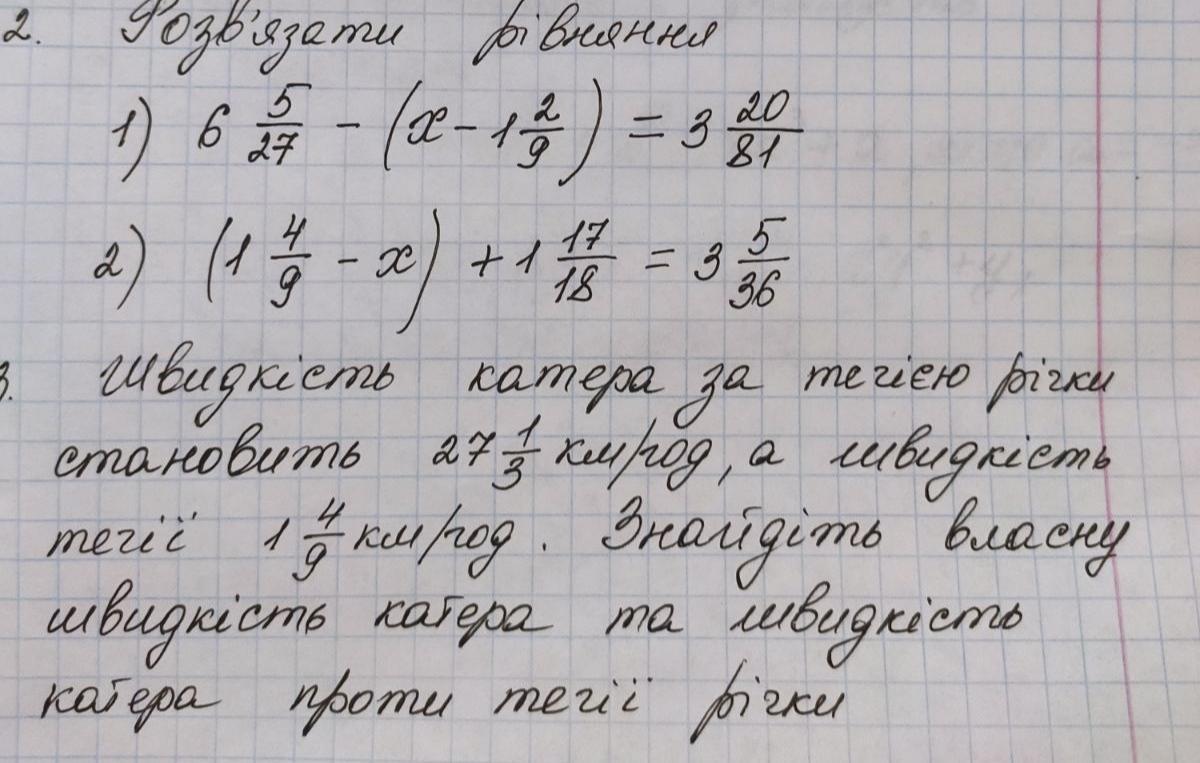 2. Розв'язати рівняння
1) 6 5/27 - (x - 1 2/9) = 3 20/81
2) (1 4/9 - x) + 1 17/18 = 3 5/36
3. Швидкість катера за течією річки
становить 27 1/3 км/год, а швидкість
течії 1 4/9 км/год. Знайдіть власну
швидкість катера та швидкість
катера проти течії річки